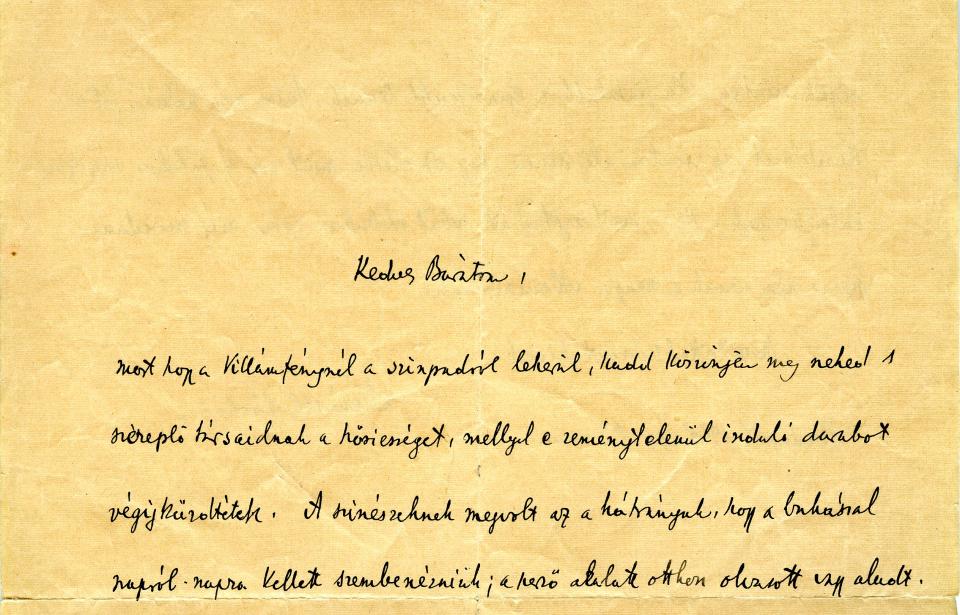 Kedves Barátom,
most hogy a Villámfénynél a szinpadról lekerül, hadd köszönjem meg neked s
szereplő társaidnak a hősiességet, mellyel e reménytelenül induló darabot
végigküzdöttétek. A szinészeknek megvolt az a hátrányuk, hogy a bukással
napról-napra kellett szembenézniük; a szerző alatta otthon olvasott vagy aludt.